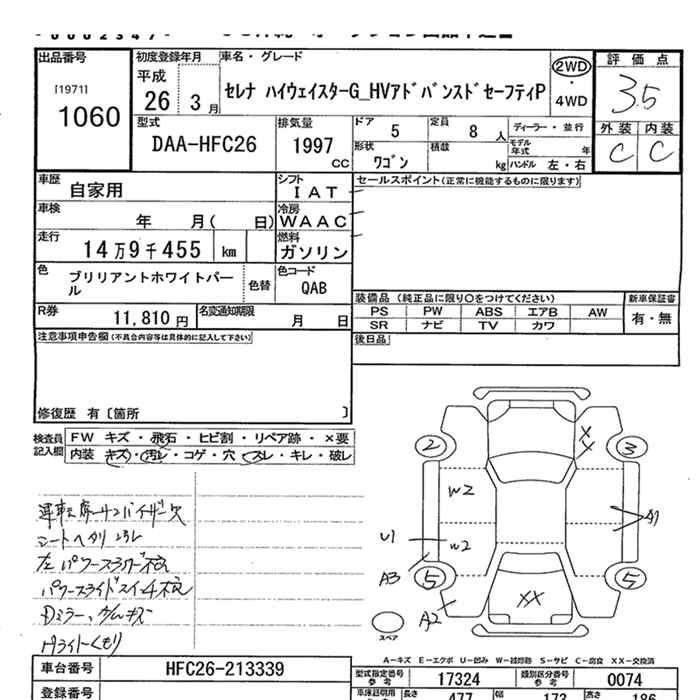 出品番号
[1971]
1060
初度登録年月
平成
26 3 月
車名・グレード
セレナ ハイウェイスターG_HVアドバンスドセーフティP
2WD
・
4WD
評価点
3.5
外装 内装
C C
型式
DAA-HFC26
排気量
1997
CC
ドア 5
定員 8 人
ディーラー・並行
形状
ワゴン
積載
kg
モデル年式 年
ハンドル 左・右
車歴 自家用
シフト
IAT
セールスポイント(正常に機能するものに限ります)
車検 年 月( 日)
冷房
WAAC
走行
14万9千455 km
燃料
ガソリン
色
ブリリアントホワイトパール
色替
色コード
QAB
R券
11,810円
名変通知期限
月 日
装備品 (純正品に限り○をつけてください)
新車保証書
PS PW ABS エアB AW
SR ナビ TV カワ
有・無
注意事項申告欄(不具合内容等は具体的に記入して下さい)
後日品
修復歴 有〔箇所 〕
検査員記入欄
FW キズ・飛石・ヒビ割・リペア跡・×要
内装 キズ・汚レ・コゲ・穴・スレ・キレ・破レ
運転席サンバイザー欠
シートヘタリ コゲ
左パワースライド不良
パワースライドスイッチ不良
Dミラー
Hライトくもり
2 3
XX
W2
A1
U1
W2
A3
5 5
A2
XX
スペア
A-キズ E-エクボ U-凹み W-補修跡 S-サビ C-腐食 XX-交換済
車台番号
HFC26-213339
型式指定番号
参考
17324
類別区分番号
参考
0074
登録番号
長さ
477
幅
172
高さ
186